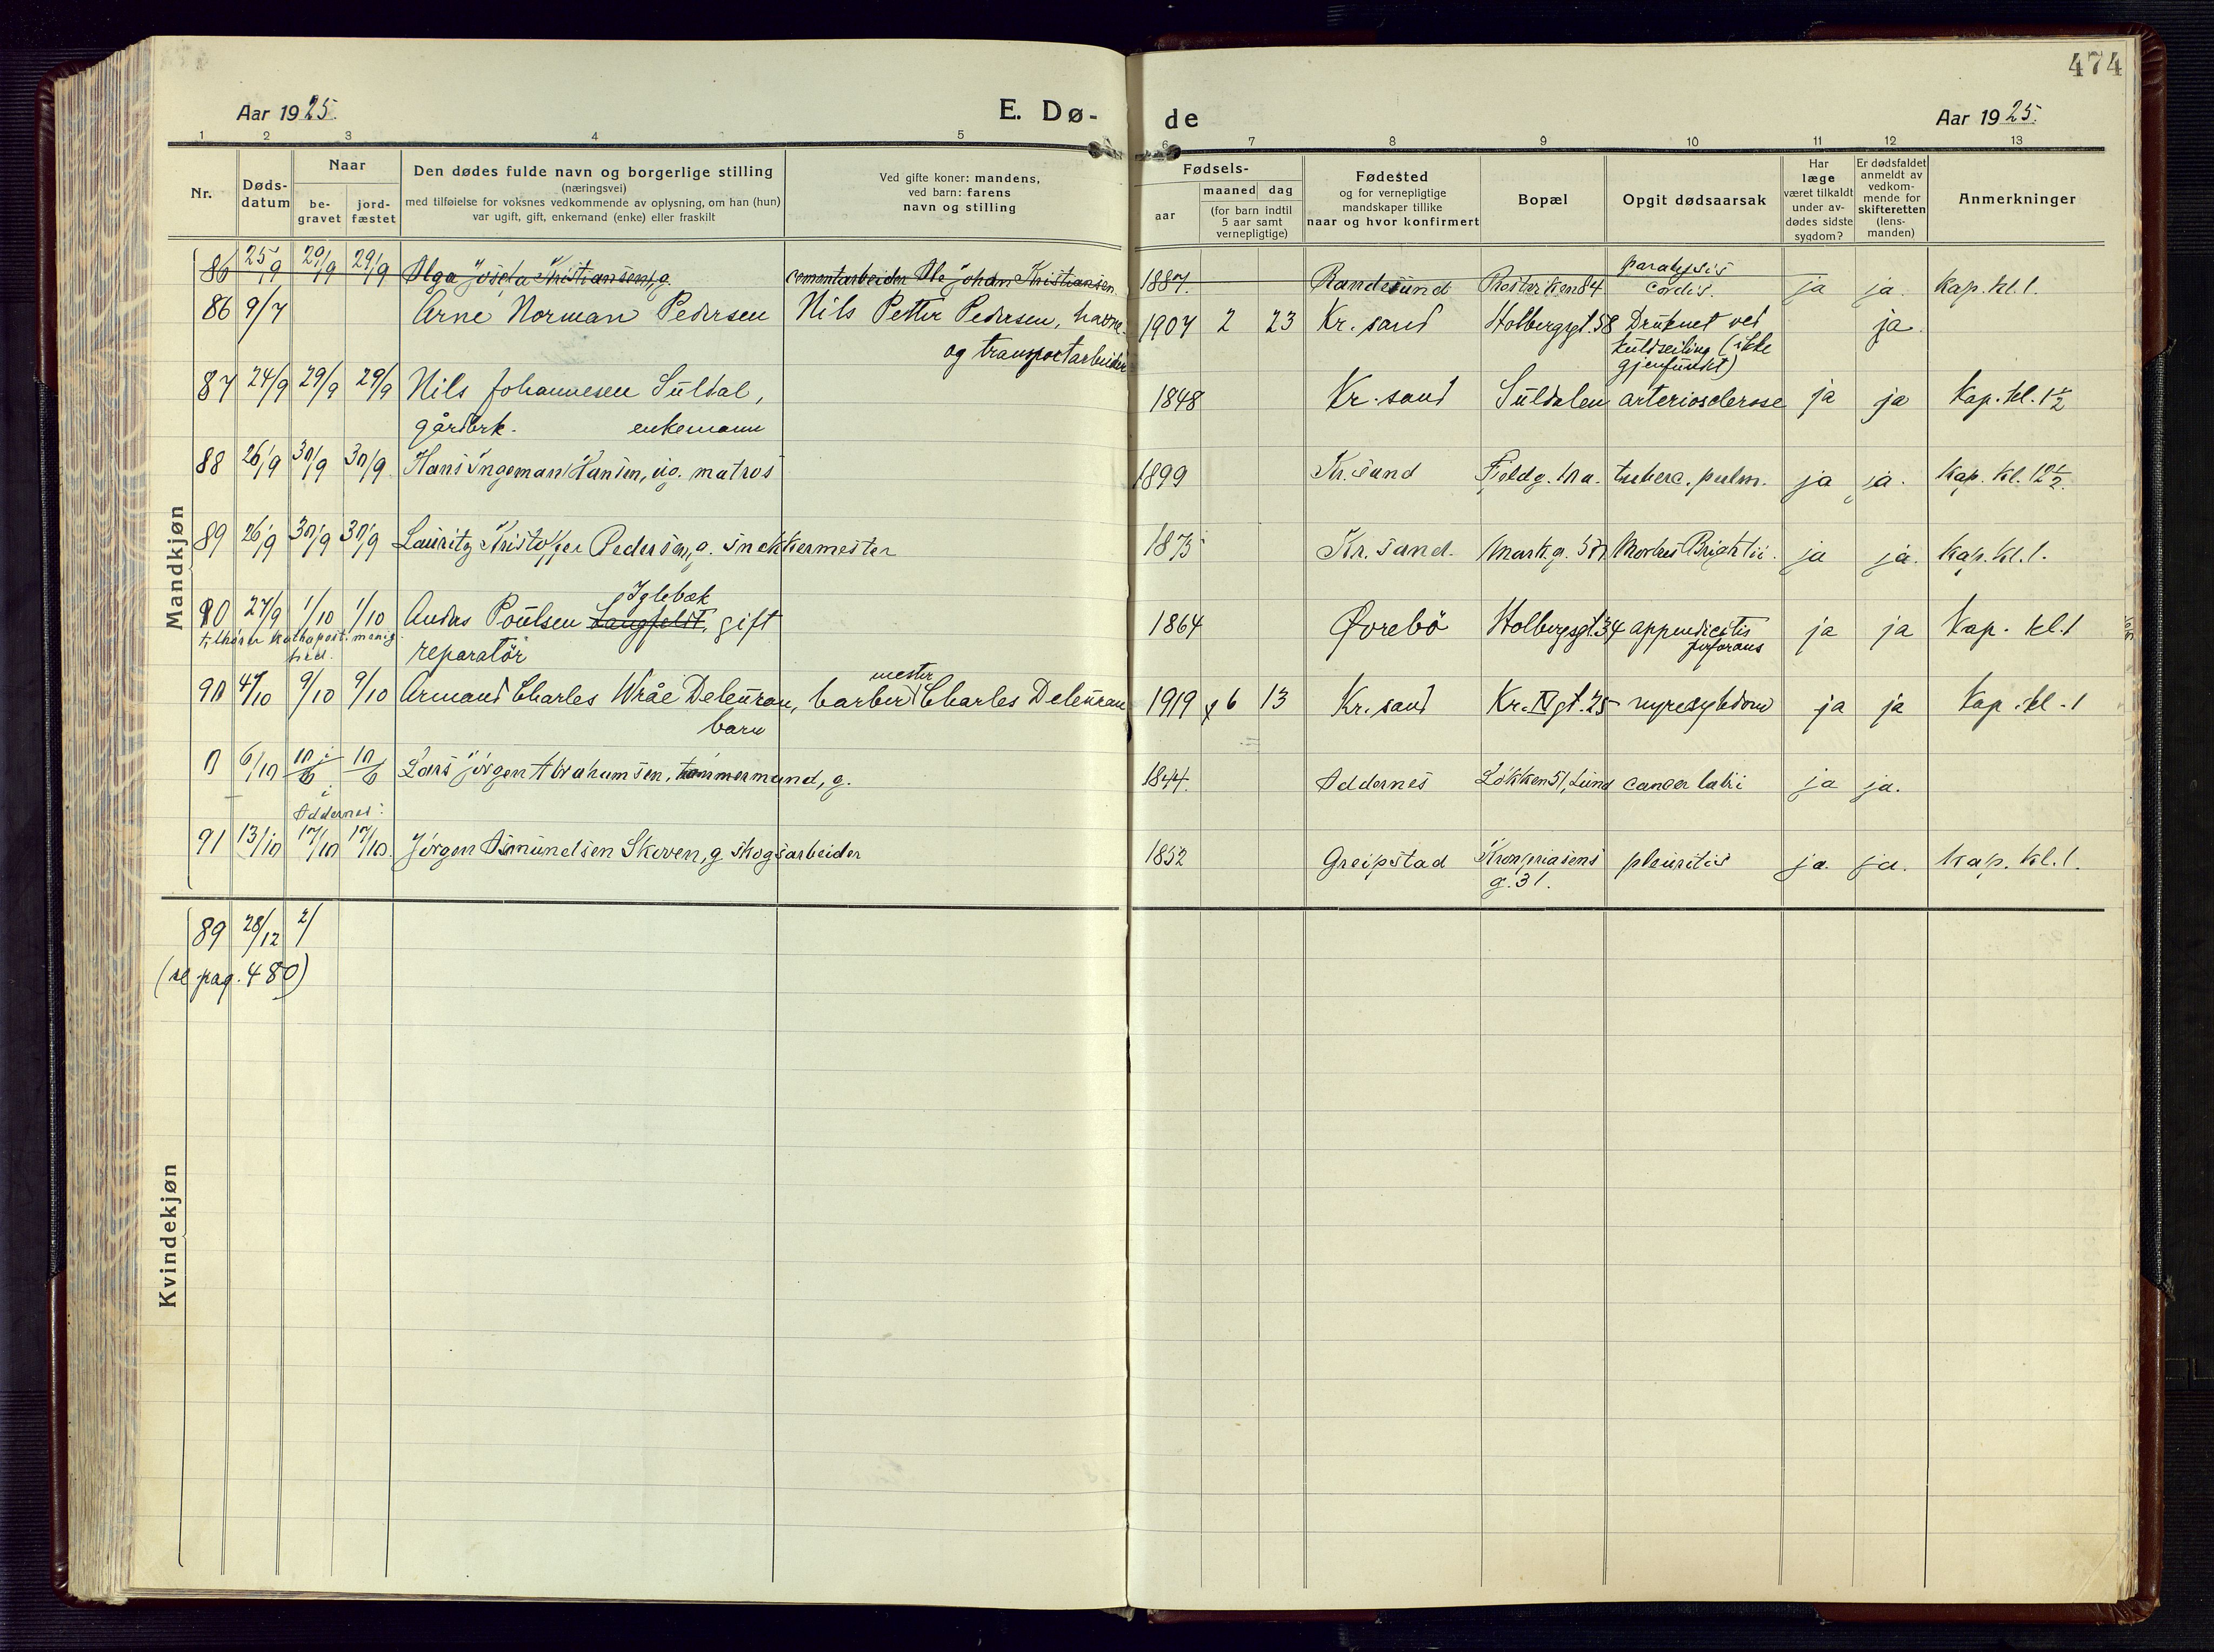 474
Aar 1925.
E. Dø-
de
Aar 1925.
1 2 3 4 5 6 7 8 9 10 11 12 13
Nr.
Døds-
datum
Naar
be-
gravet
jord-
fæstet
Den dødes fulde navn og borgerlige stilling
(næringsvei)
med tilføielse for voksnes vedkommende av oplysning, om han (hun)
var ugift, gift, enkemand (enke) eller fraskilt
Ved gifte koner: mandens,
ved barn: farens
navn og stilling
Fødsels-
aar
maaned dag
(for barn indtil
5 aar samt
vernepligtige)
Fødested
og for vernepligtige
mandskaper tillike
naar og hvor konfirmert
Bopæl
Opgit dødsaarsak
Har
læge
været tilkaldt
under av-
dødes sidste
sygdom?
Er dødsfaldet
anmeldt av
vedkom-
mende for
skifteretten
(lens-
manden)
Anmerkninger
Mandkjøn
86 25/9 29/9 29/9 Olga Josefa Kristiansen, g. cementarbeider Ole Johan Kristiansen 1887. Randesund 84 paralysis
cordis. ja ja. Kap. kl. 1.
86 9/7 Arne Norman Pedersen Nils Petter Pedersen, havne-
og transportarbeider 1907 2 23 Kr. sand Holbergsgt. 58 Druknet ved
kuldseiling (ikke
gjenfundet) ja.
87 24/9 29/9 29/9 Nils Johannesen Suldal,
gårdbrk. enkemann 1848 Kr. sand Suldalen arteriosclerose ja ja Kap. kl. 1½
88 26/9 30/9 30/9 Hans Ingeman Hansen, ug. matros 1899 Kr. sand Tuberc. pulm. ja ja. Kap. kl. 12½.
89 26/9 30/9 30/9 Lauritz Kristoffer Pedersen, g. snekkermester 1875 Kr. sand. Markg. Morbus Brightii. ja ja. Kap. kl. 1.
90 27/9 1/10 1/10 Anders Poulsen Langfeldt, gift
Iglebæk
reparatör 1864 Øvrebö Holbergsgt. 34 appendicitis
perforans ja ja Kap. kl. 1
90 4/10 9/10 9/10 Armand Charles Wråe Deleuran, barn
barbermester Charles Deleuran 1919 6 13 Kr. sand Kr. IV gt. 25 nyresykdom ja ja Kap. kl. 1
0 6/10 10/6 10/6 Lars Jörgen Abrahamsen, tømmermand, g. 1844. Oddernes Løkken 51, Lund cancer labii ja ja.
i
Oddernes.
91 13/10 17/10 17/10. Jörgen Asmundsen Skoven, g. skogsarbeider 1852 Greipstad Kronprinsens
g. 31. pleuritis ja. ja. Kap. kl. 1.
Kvindekjøn
89 28/12 2/
(se pag. 480)